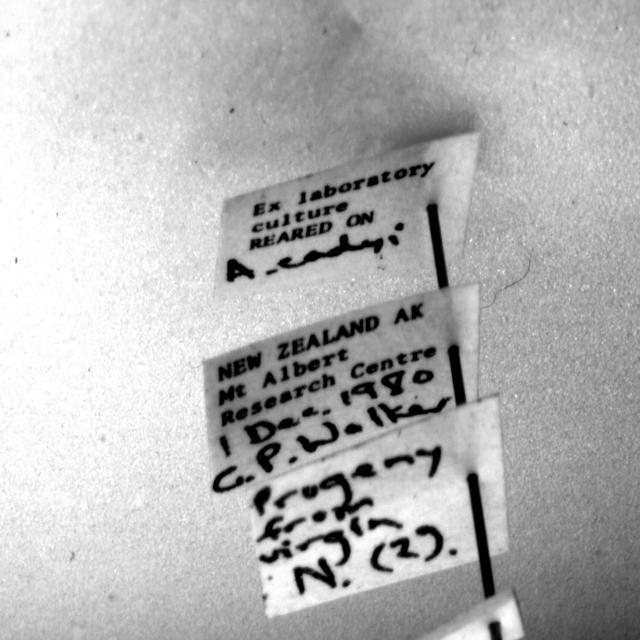 Ex laboratory
culture
REARED ON
A.
NEW ZEALAND AK
Mt Albert
Research Centre
1 Dec. 1980
C. P. Walker
Progeny
from
virgin
N. (2).